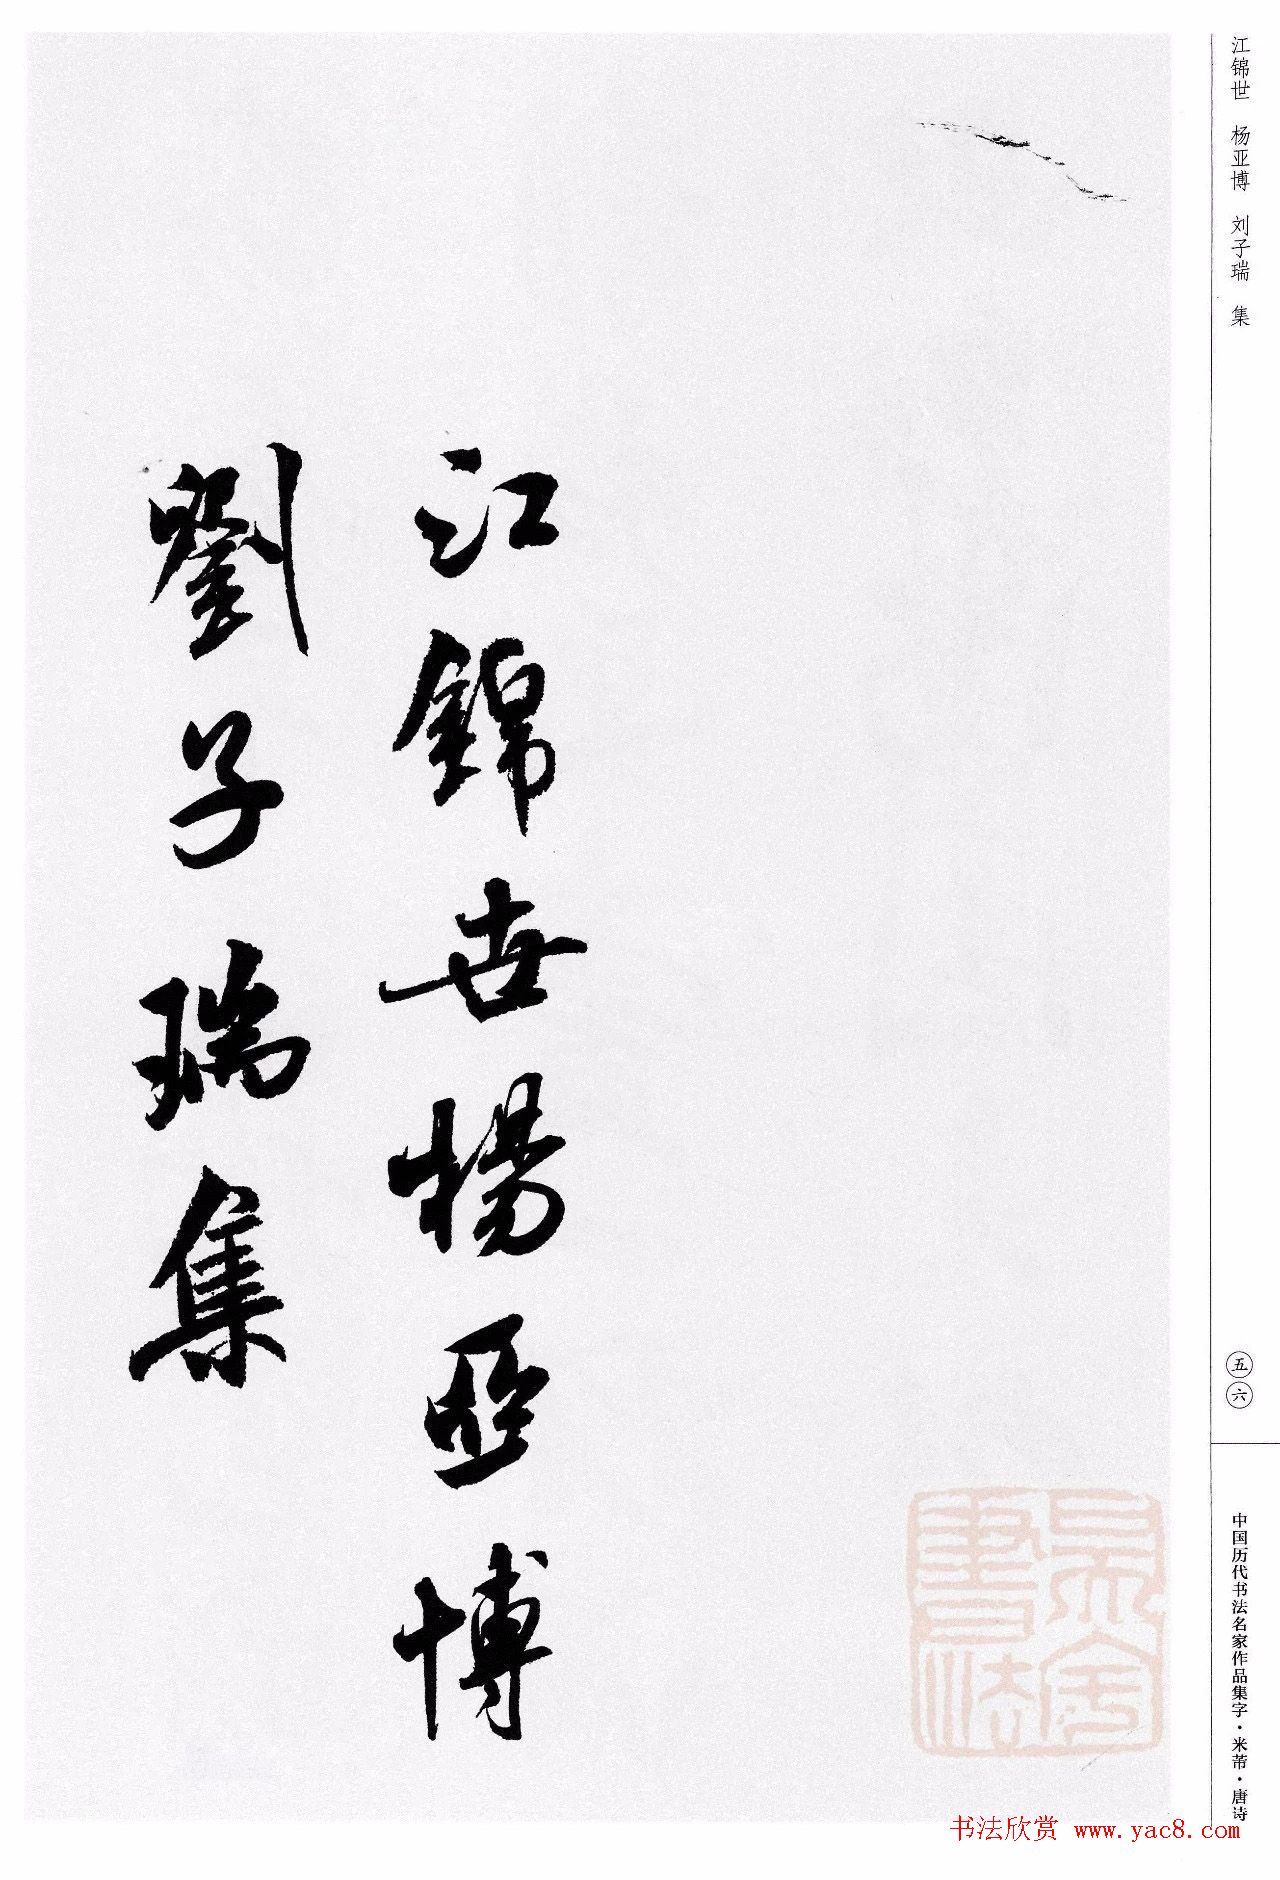 江锦世 杨亚博 刘子瑞 集
江錦世楊亞博
劉子瑞集
五六
中国历代书法名家作品集字·米芾·唐诗
书法欣赏 www.yac8.com